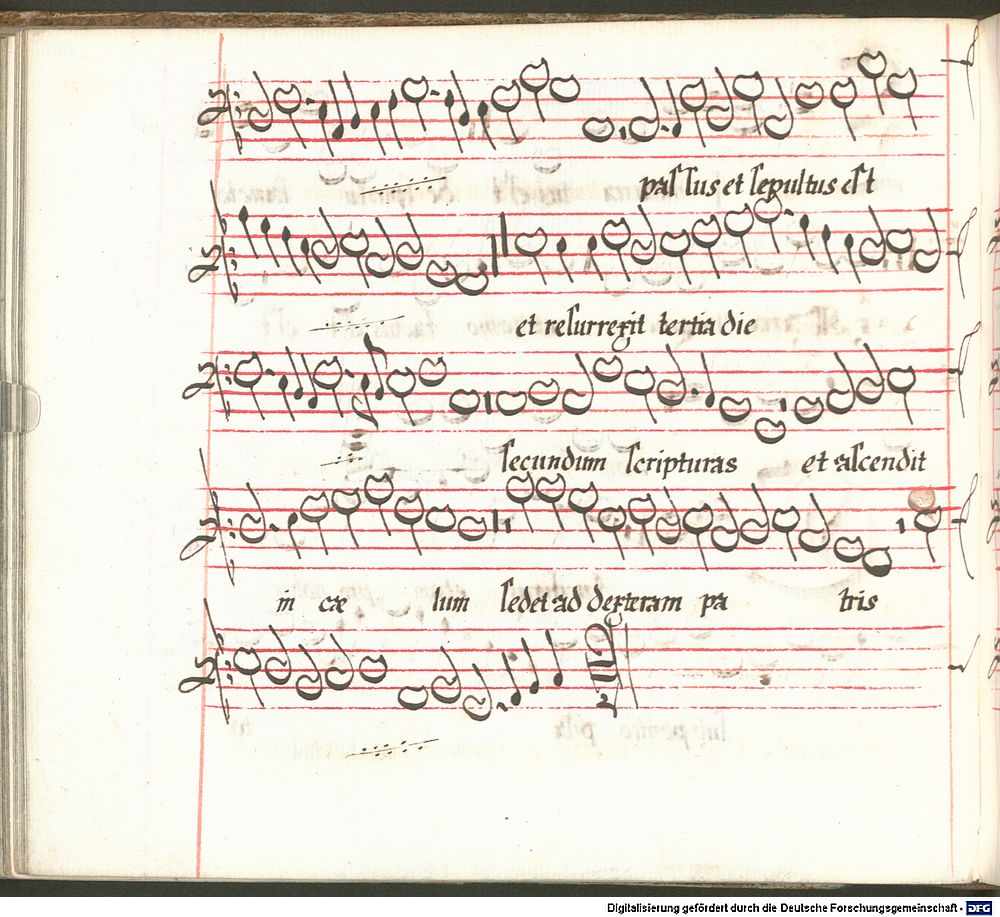 paſſus et ſepultus eſt
et reſurrexit tertia die
ſecundum ſcripturas et aſcendit
in cæ lum ſedet ad dexteram pa tris
Digitalisierung gefördert durch die Deutsche Forschungsgemeinschaft - DFG